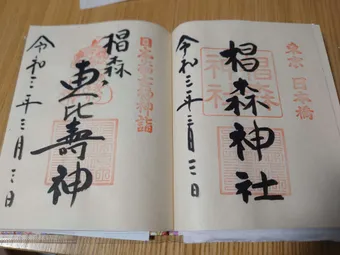 東京 日本橋
椙森神社
令和三年三月三日
椙森
神社
日本橋七福神詣
椙森
恵比壽神
令和三年三月三日